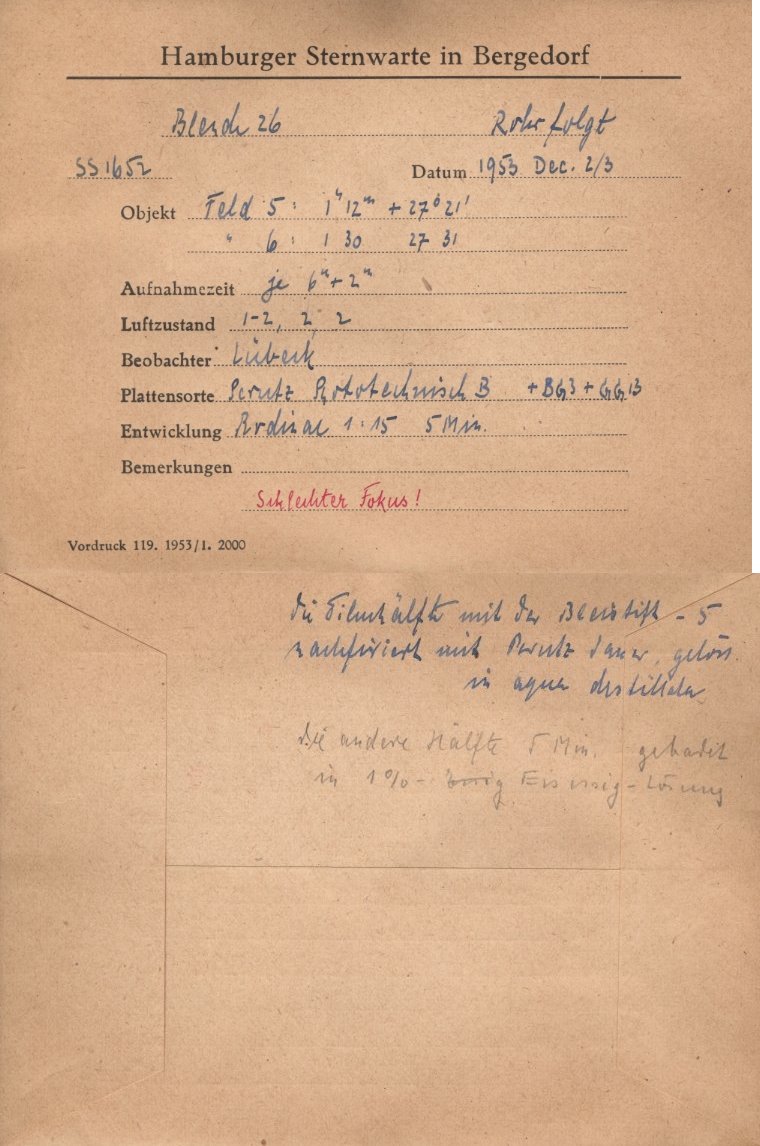 Hamburger Sternwarte in Bergedorf
Blende 26 Rohr folgt
SS1652 Datum 1953 Dec. 2/3
Objekt Feld 5 : 1h 12m + 27° 21'
" 6 : 1 30 27 31
Aufnahmezeit je 6m + 2m
Luftzustand 1-2, 2, 2
Beobachter Lübeck
Plattensorte Perutz Phototechnisch B + BG3 + GG13
Entwicklung Rodinal 1:15 5 Min.
Bemerkungen
Schlechter Fokus!
Vordruck 119. 1953/1. 2000
Die Filmhälfte mit der Bleistift - 5
nachfixiert mit Perutz sauer, gelöst
in aqua destillata
Die andere Hälfte 5 Min. gebadet
in 1%- Eisessig-Lösung